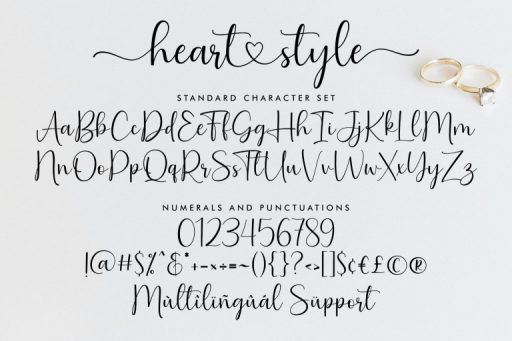 heart♡style
STANDARD CHARACTER SET
AaBbCcDdEeFfGgHhIiJjKkLlMm
NnOoPpQqRrSsTtUuVvWwXxYyZz
NUMERALS AND PUNCTUATIONS
0123456789
!@#$%^&*+-×÷=~(){}?<>[]$¢€£©®
Mùltilïñgùál Sùppört